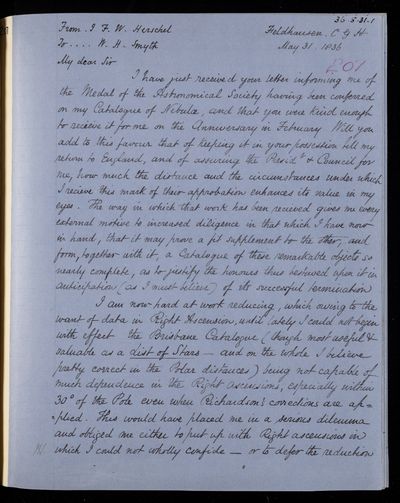 36-5-31-1
From J. F. W. Herschel
Feldhausen, C G H
To .... W. H. Smyth
May 31. 1836
My dear Sir
I have just received your letter informing me of
the Medal of the Astronomical Society having been conferred
on my Catalogue of Nebulæ, and that you were kind enough
to recieve it for me on the Anniversary in February Will you
add to this favour that of keeping it in your possession till my
return to England, and of assuring the Presidt & Council for
me, how much the distance and the circumstances under which
I recieve this mark of their approbation enhances its value in my
eyes. The way in which that work has been received gives me every
external motive to increased diligence in that which I have now
in hand, that it may prove a fit supplement to the other, and
form, together with it, a Catalogue of these remarkable objects so
nearly complete, as to justify the honours thus bestowed upon it in
anticipation (as I must believe) of its successful termination
I am now hard at work reducing, which owing to the
want of data in Right Ascension, until lately I could not begin
with effect the Brisbane Catalogue (though most useful &
valuable as a List of Stars — and on the whole I believe
pretty correct in the Polar distances) being not capable of
much dependence in the Right ascensions, especially within
30° of the Pole even when Richardson's corrections are ap=
=plied. This would have placed me in a serious dilemma
and obliged me either to put up with Right ascensions in
which I could not wholly confide — or to defer the reduction